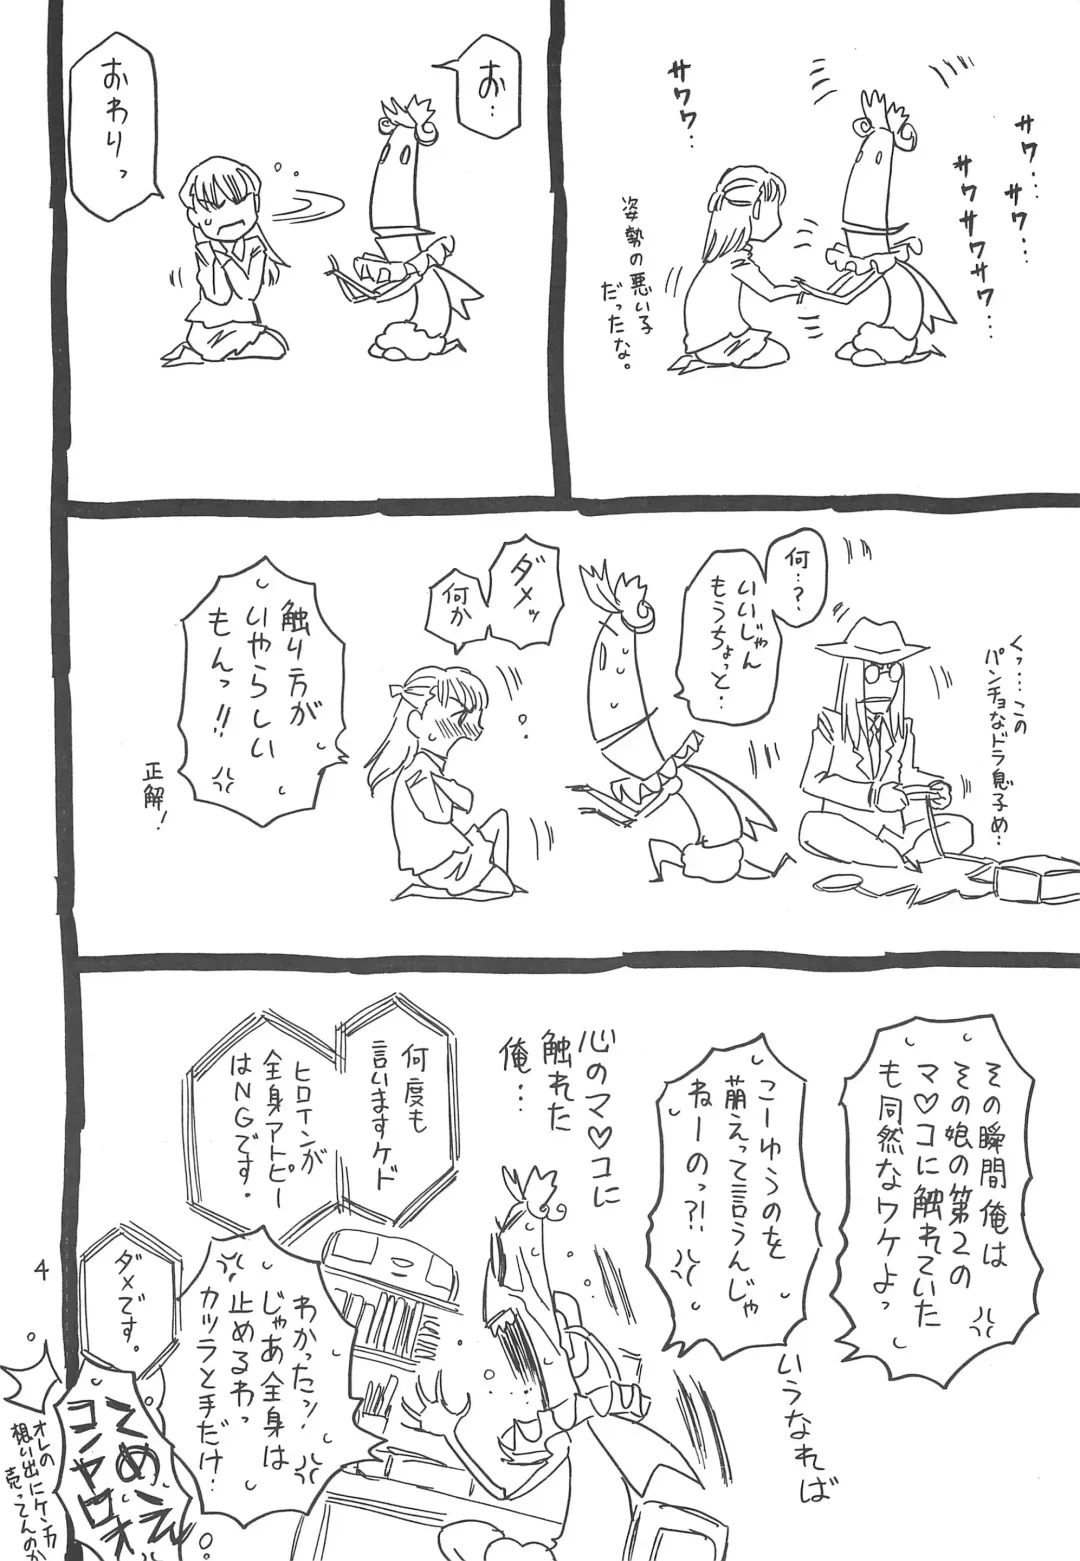 サワ…
サワ…
サワサワサワ…
サワワ…
姿勢の悪い子
だったな。
お…
おわりっ
くっ…この
パンチョなドラ息子め…
何…?
いいじゃん
もうちょっと…
ダメッ
何か
触り方が
いやらしい
もんっ!!
正解!
その瞬間俺は
その娘の第2の
マ♡コに触れていた
も同然なワケよっ
こーゆうのを
萌えって言うんじゃ
ねーのっ?!
いうなれば
心のマ♡コに
触れた
俺…
何度も
言いますケド
ヒロインが
全身アトピー
はNGです。
わかったッ!
じゃあ全身は
止めるわっ
カツラと手だけ…
ダメです。
てめえ
コンヤロオ
オレの
想い出にケンカ
売ってんのか
4